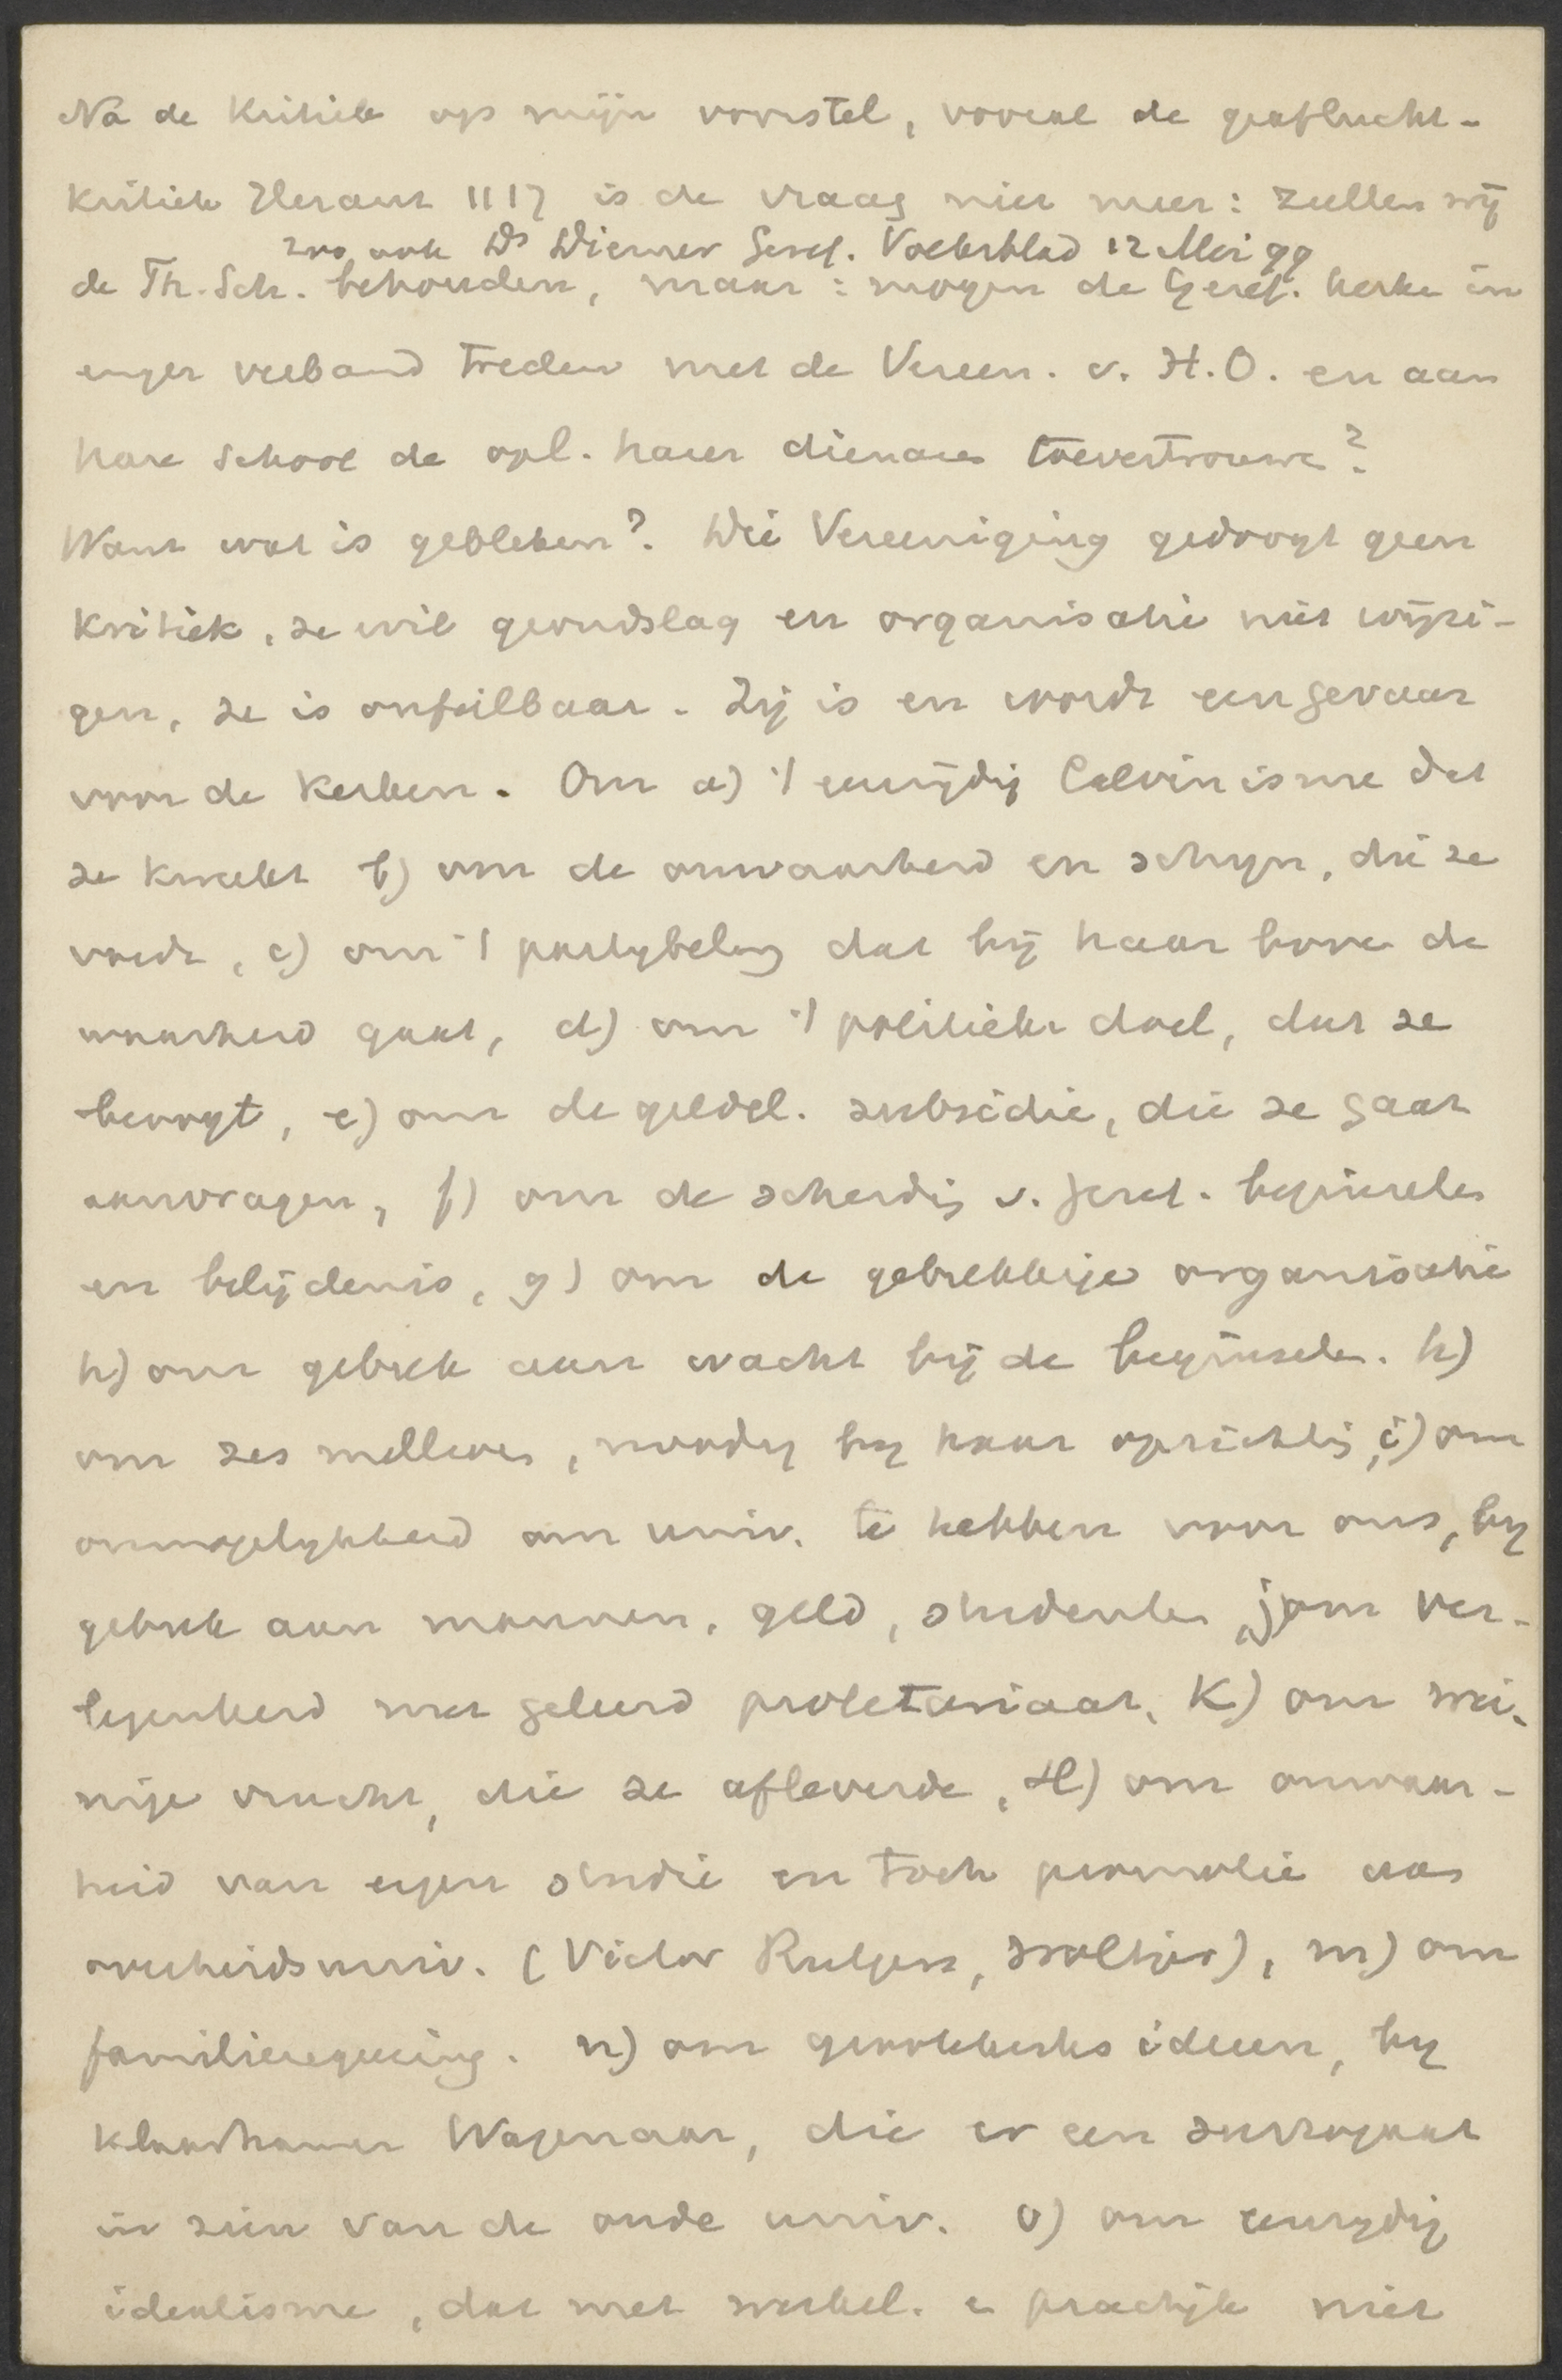 Na de Kritiek op mijn voorstel, vooral de geaflucht-
kritiek Heraut 1117 is de vraag niet meer: zullen wij
zoo ook Ds Diemer Geref. Volksblad 12 Mei 99
de Th. Sch. behouden, maar: mogen de Geref. kerke in
enger verband treden met de Vereen. v. H.O. en aan
hare school de opl. harer dienares toevertrouwe?
Want wat is gebleken? Die Vereeniging gedoogt geen
Kritiek, ze wil grondslag en organisatie niet wijzi-
gen, ze is onfeilbaar. Zij is en wordt een gevaar
voor de Kerken. Om a) 't eenzijdig Calvinisme dat
ze kweekt b) om de onwaarheid en schijn, die ze
voedt, c) om 't partijbelang dat bij haar bove de
waarheid gaat, d) om 't politieke doel, dat ze
beoogt, e) om de geldel. subsidie, die ze gaat
aanvragen, f) om de scheidig v. geref. beginsele
en belijdenis, g) om de gebrekkige organisatie
h) om gebrek aan wacht bij de beginsele. h)
om zes millioen, noodig bij haar oprichtig, i) om
onmogelijkheid om univ. te hebben voor ons, bij
gebrek aan mannen, geld, studenten, j) om ver-
legenheid met geleerd proletariaat, K) om wei-
nige vrucht, die ze afleverde, l) om onwaar-
heid van eigen studie en toch promotie aan
overheidsuniv. (Victor Rutgers, Woltjer), m) om
familieregeering. n) om genootskerks ideeen, bij
Klaarhamer Wagenaar, die er een surrogaat
in zien van de oude univ. o) om eenzijdig
idealisme, dat met werkel. e practijk niet